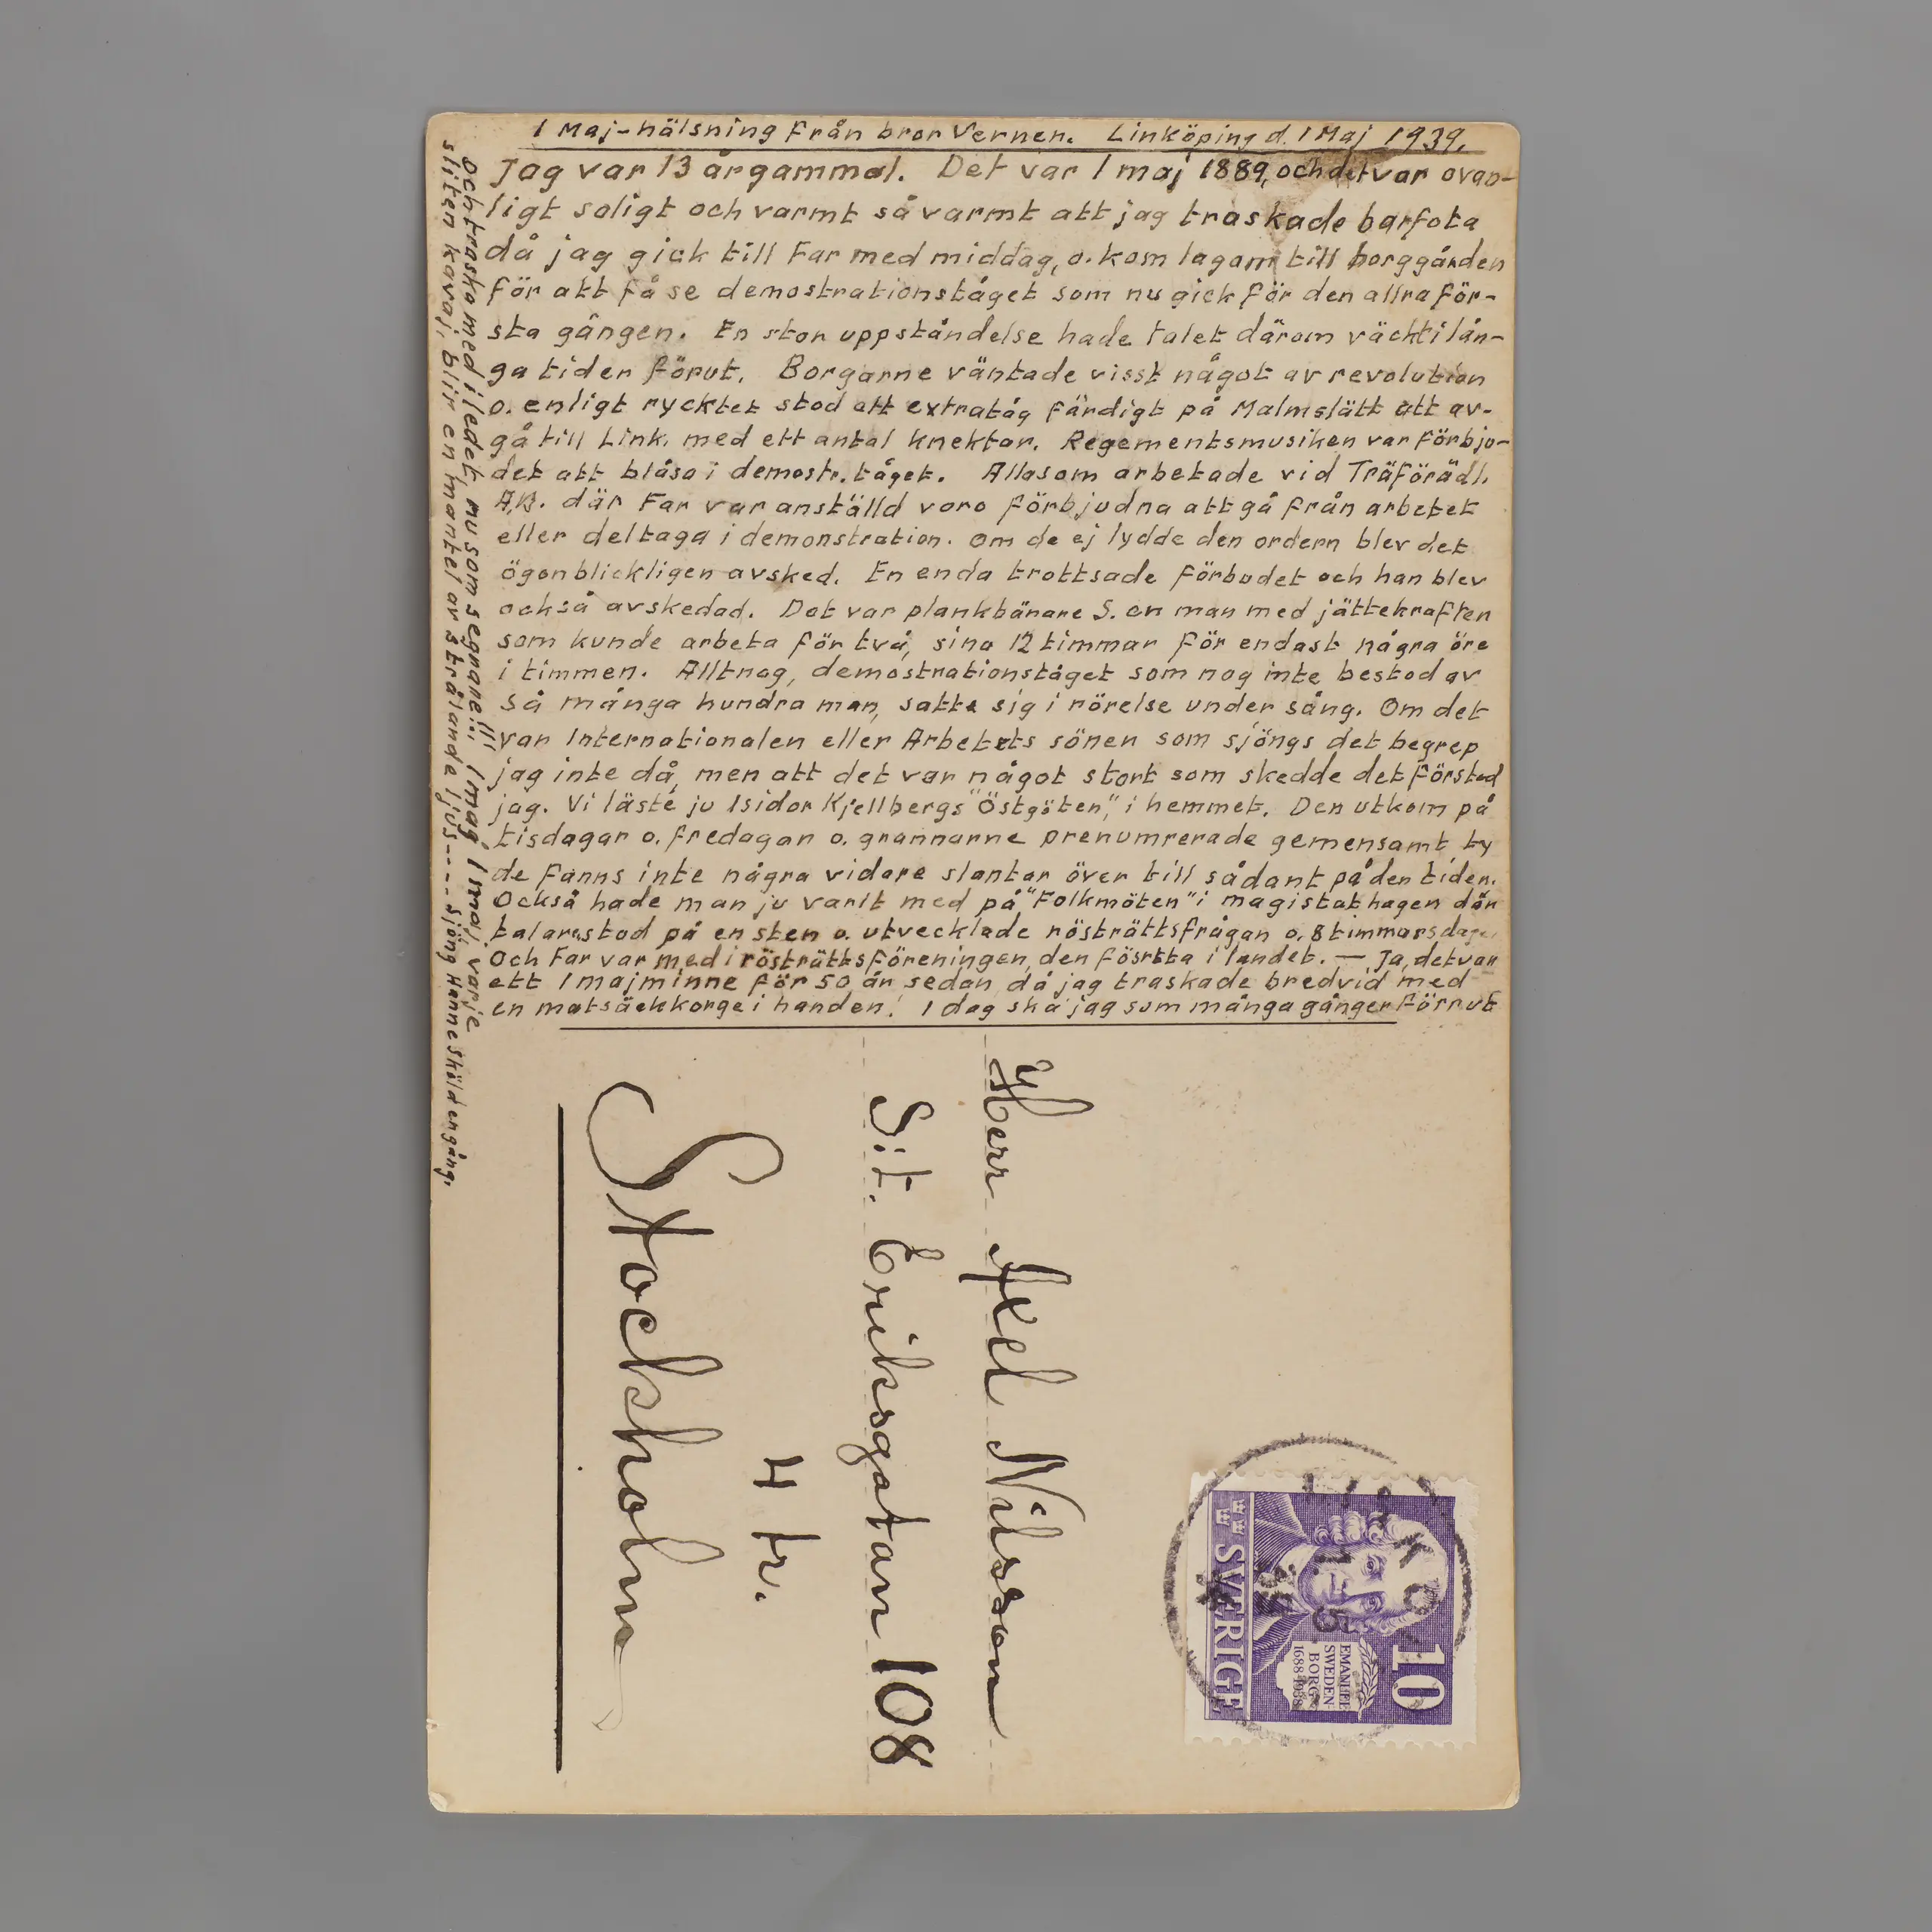 1 Maj-hälsning från bror Verner. Linköping d. 1 Maj 1939.
Jag var 13 årgammal. Det var 1 maj 1889, och det var ovan-
ligt soligt och varmt så varmt att jag traskade barfota
då jag gick till Far med middag, o. kom lagom till borggården
för att få se demostrationståget som nu gick för den allra för-
sta gången. En stor uppståndelse hade talet därom väckt i lån-
ga tider förut. Borgarne väntade visst något av revolution
o. enligt rycktet stod ett extratåg färdigt på Malmslätt att av-
gå till Link. med ett antal knektar. Regementsmusiken var förbju-
det att blåsa i demostr. tåget. Alla som arbetade vid Träförädl.
A.B. där Far var anställd voro förbjudna att gå från arbetet
eller deltaga i demonstration. Om de ej lydde den ordern blev det
ögonblickligen avsked. En enda trottsade förbudet och han blev
också avskedad. Det var plankbärare S. en man med jättekrafter
som kunde arbeta för två, sina 12 timmar för endast några öre
i timmen. Alltnog, demostrationståget som nog inte bestod av
så många hundra man, satte sig i rörelse under sång. Om det
var Internationalen eller Arbetets söner som sjöngs det begrep
jag inte då, men att det var något stort som skedde det förstod
jag. Vi läste ju Isidor Kjellbergs "Östgöten", i hemmet. Den utkom på
tisdagar o. fredagar o. grannarne prenumrerade gemensamt ty
de fanns inte några vidare slantar över till sådant på den tiden.
Också hade man ju varit med på "Folkmöten" i magistathagen där
talarestod på en sten o. utvecklade rösträttsfrågan o. 8 timmarsdagen
Och Far var med i rösträttsföreningen, den fösrtta i landet. — Ja, det var
ett 1 maj minne för 50 år sedan då jag traskade bredvid med
en matsäckkorge i handen! I dag ska jag som många gånger förrut
Och traska med i ledet nu som segrare!!! I mag 1 maj varje
sliten kavaj, blir en mantel av strålande ljus---- sjöng Hanne Sköld en gång.
Herr Axel Nilsson
S:t. Eriksgatan 108
4 tr.
Stockholm
10
EMANUEL
SWEDEN-
BORG
1688-1938
SVERIGE